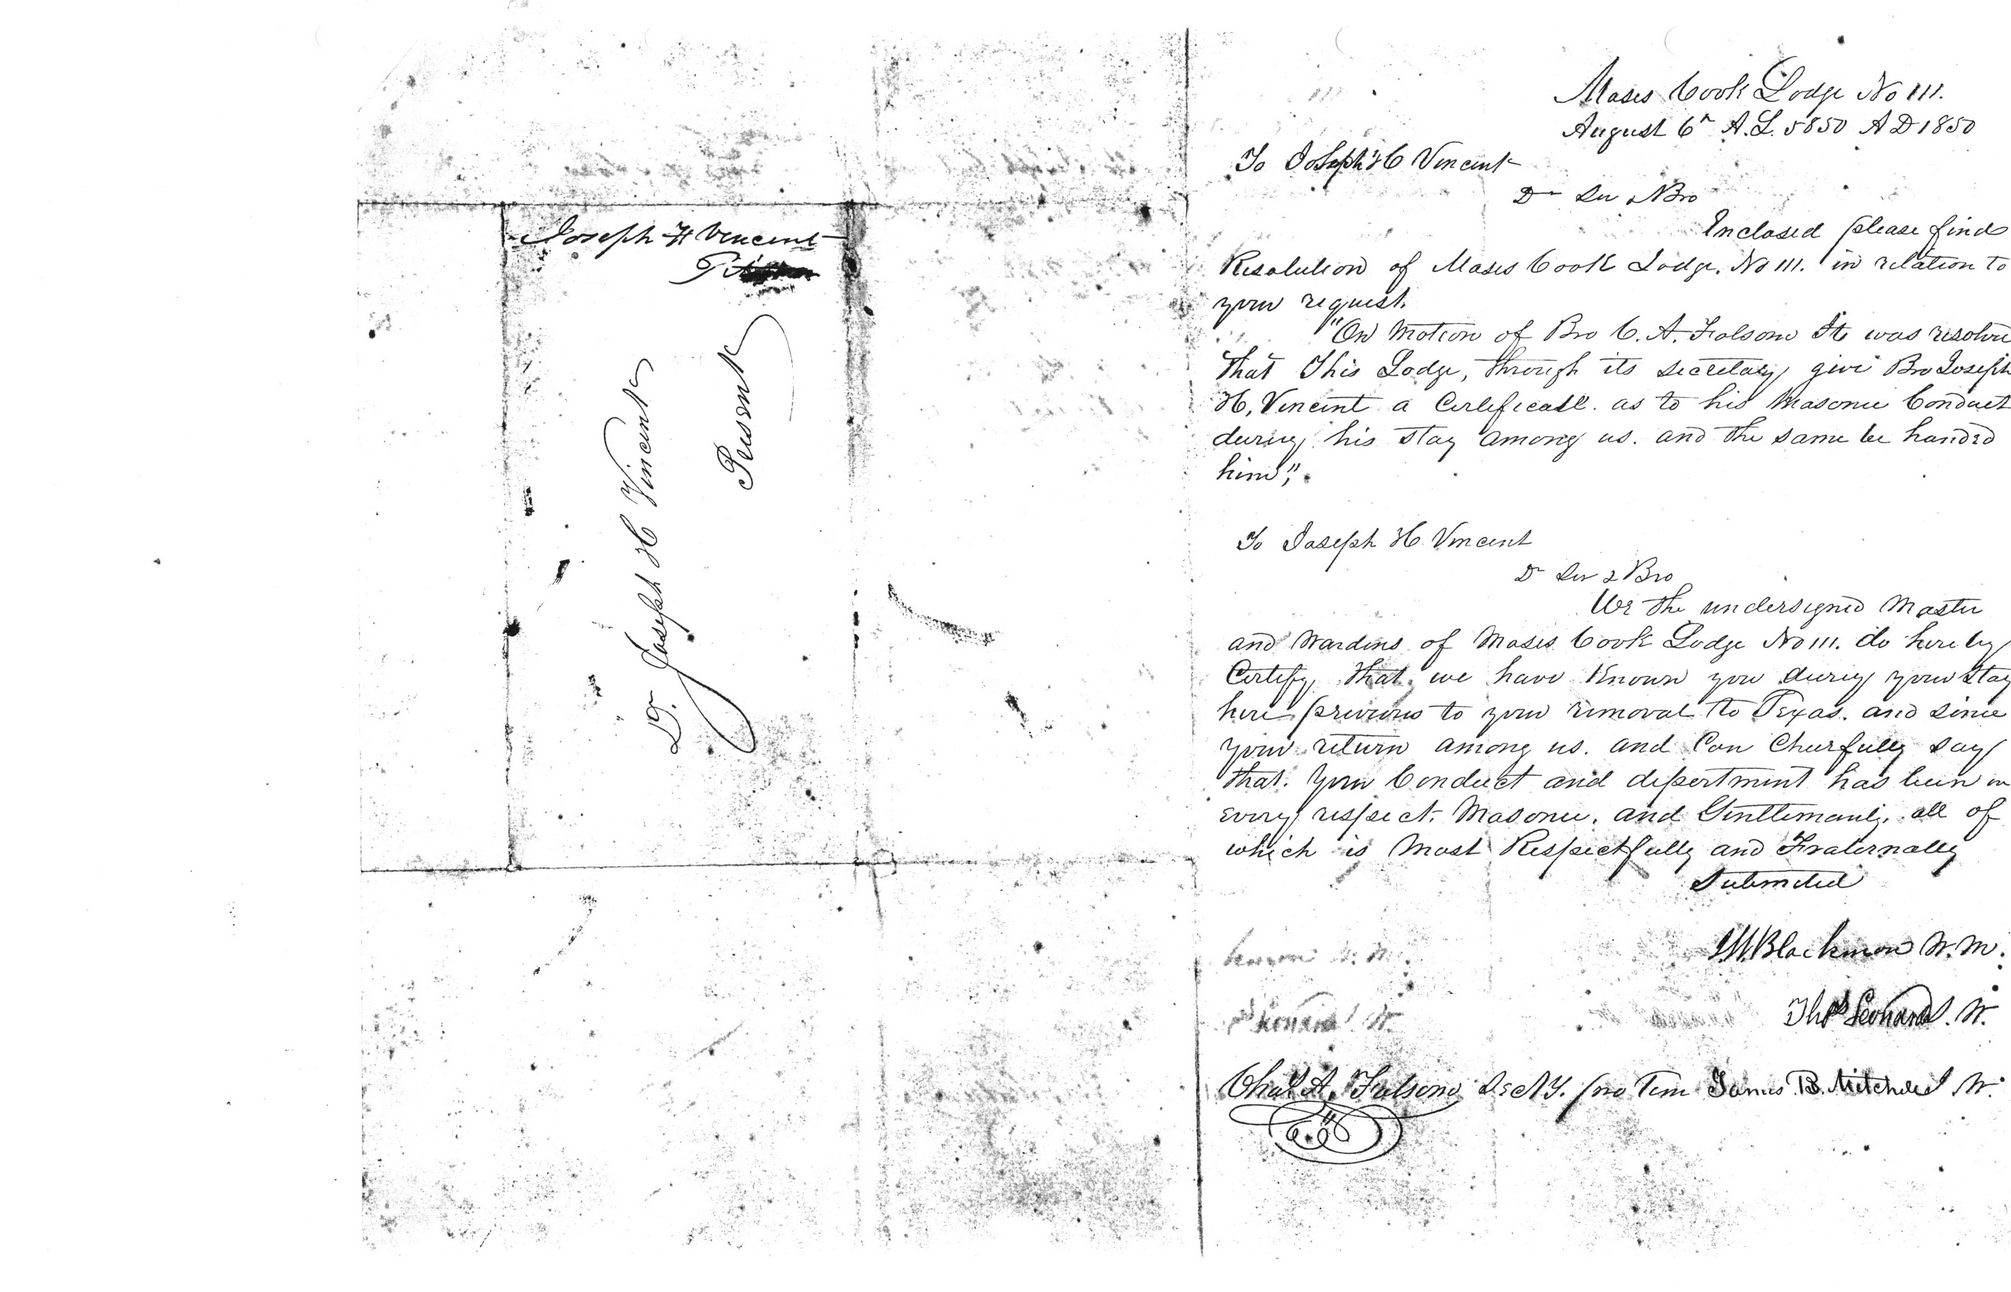 Joseph H Vincent
Dr. Joseph H Vincent
Present
Moses Cook Lodge No 111.
August 6th A.L. 5850 AD 1850
To Joseph H Vincent
Dr Sir & Bro
Enclosed please find
Resolution of Moses Cook Lodge. No 111. in relation to
your request.
"On Motion of Bro C. A. Folsom It was resolve
that This Lodge, through its secretary give Bro Joseph
H, Vincent a Certificate. as to his Masonic Conduct
during his stay among us. and the same be handed
him",.
To Joseph H Vincent
Dr Sir & Bro
We the undersigned Master
and Wardens of Moses Cook Lodge No 111. do hereby
Certify, that we have Known you during your stay
here previous to your removal to Texas. and since
your return among us. and Can Chearfully say
that. your Conduct and depertment has been in
every respect. Masonic. and Gentlemanly. all of
which is Most Respectfully and Fraternally
Submited
Blackmon W. M.
Thos Leonard S. W.
Chas A. Folsom SecNY. pro Tem James B. Mitchell J W.